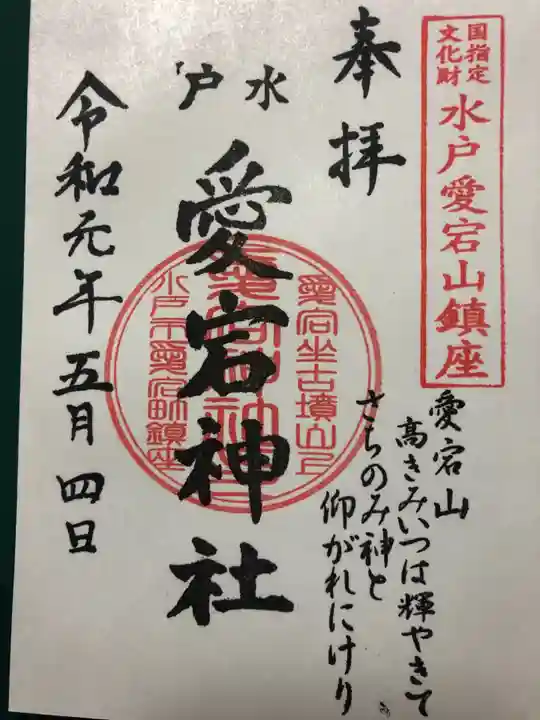 国指定
文化財
水戸愛宕山鎮座
奉拝
愛宕山
高きみいつは輝やきて
さちのみ神と
仰がれにけり
水戸
愛宕神社
愛宕坐古墳山上
愛宕神社
水戸市愛宕町鎮座
令和元年五月四日